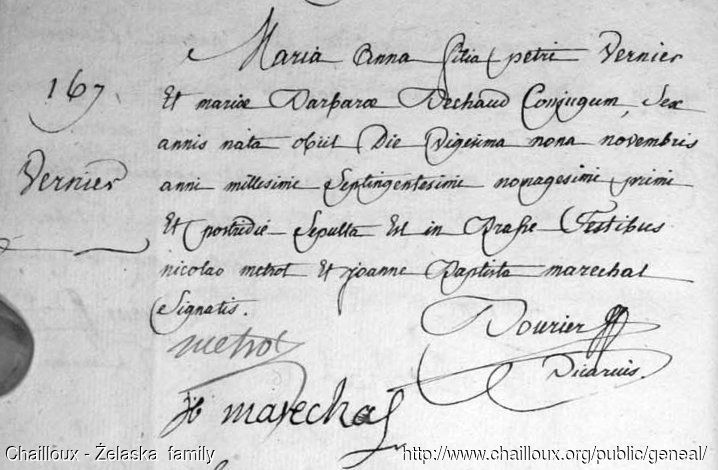 Maria Anna filia petri Vernier
167.
Et mariæ Barbaræ Bechaud Conjugum, Sex
annis nata obiit Die Vigesima nona novembris
Vernier
anni millesimi Septingentesimi nonagesimi primi
Et postridie Sepulta Est in Testibus
nicolao metrot Et joanne Baptista marechal
Signatis.
metrot
Bourier
Vicarius.
marechal
Chailloux - Żelaska family
http://www.chailloux.org/public/geneal/